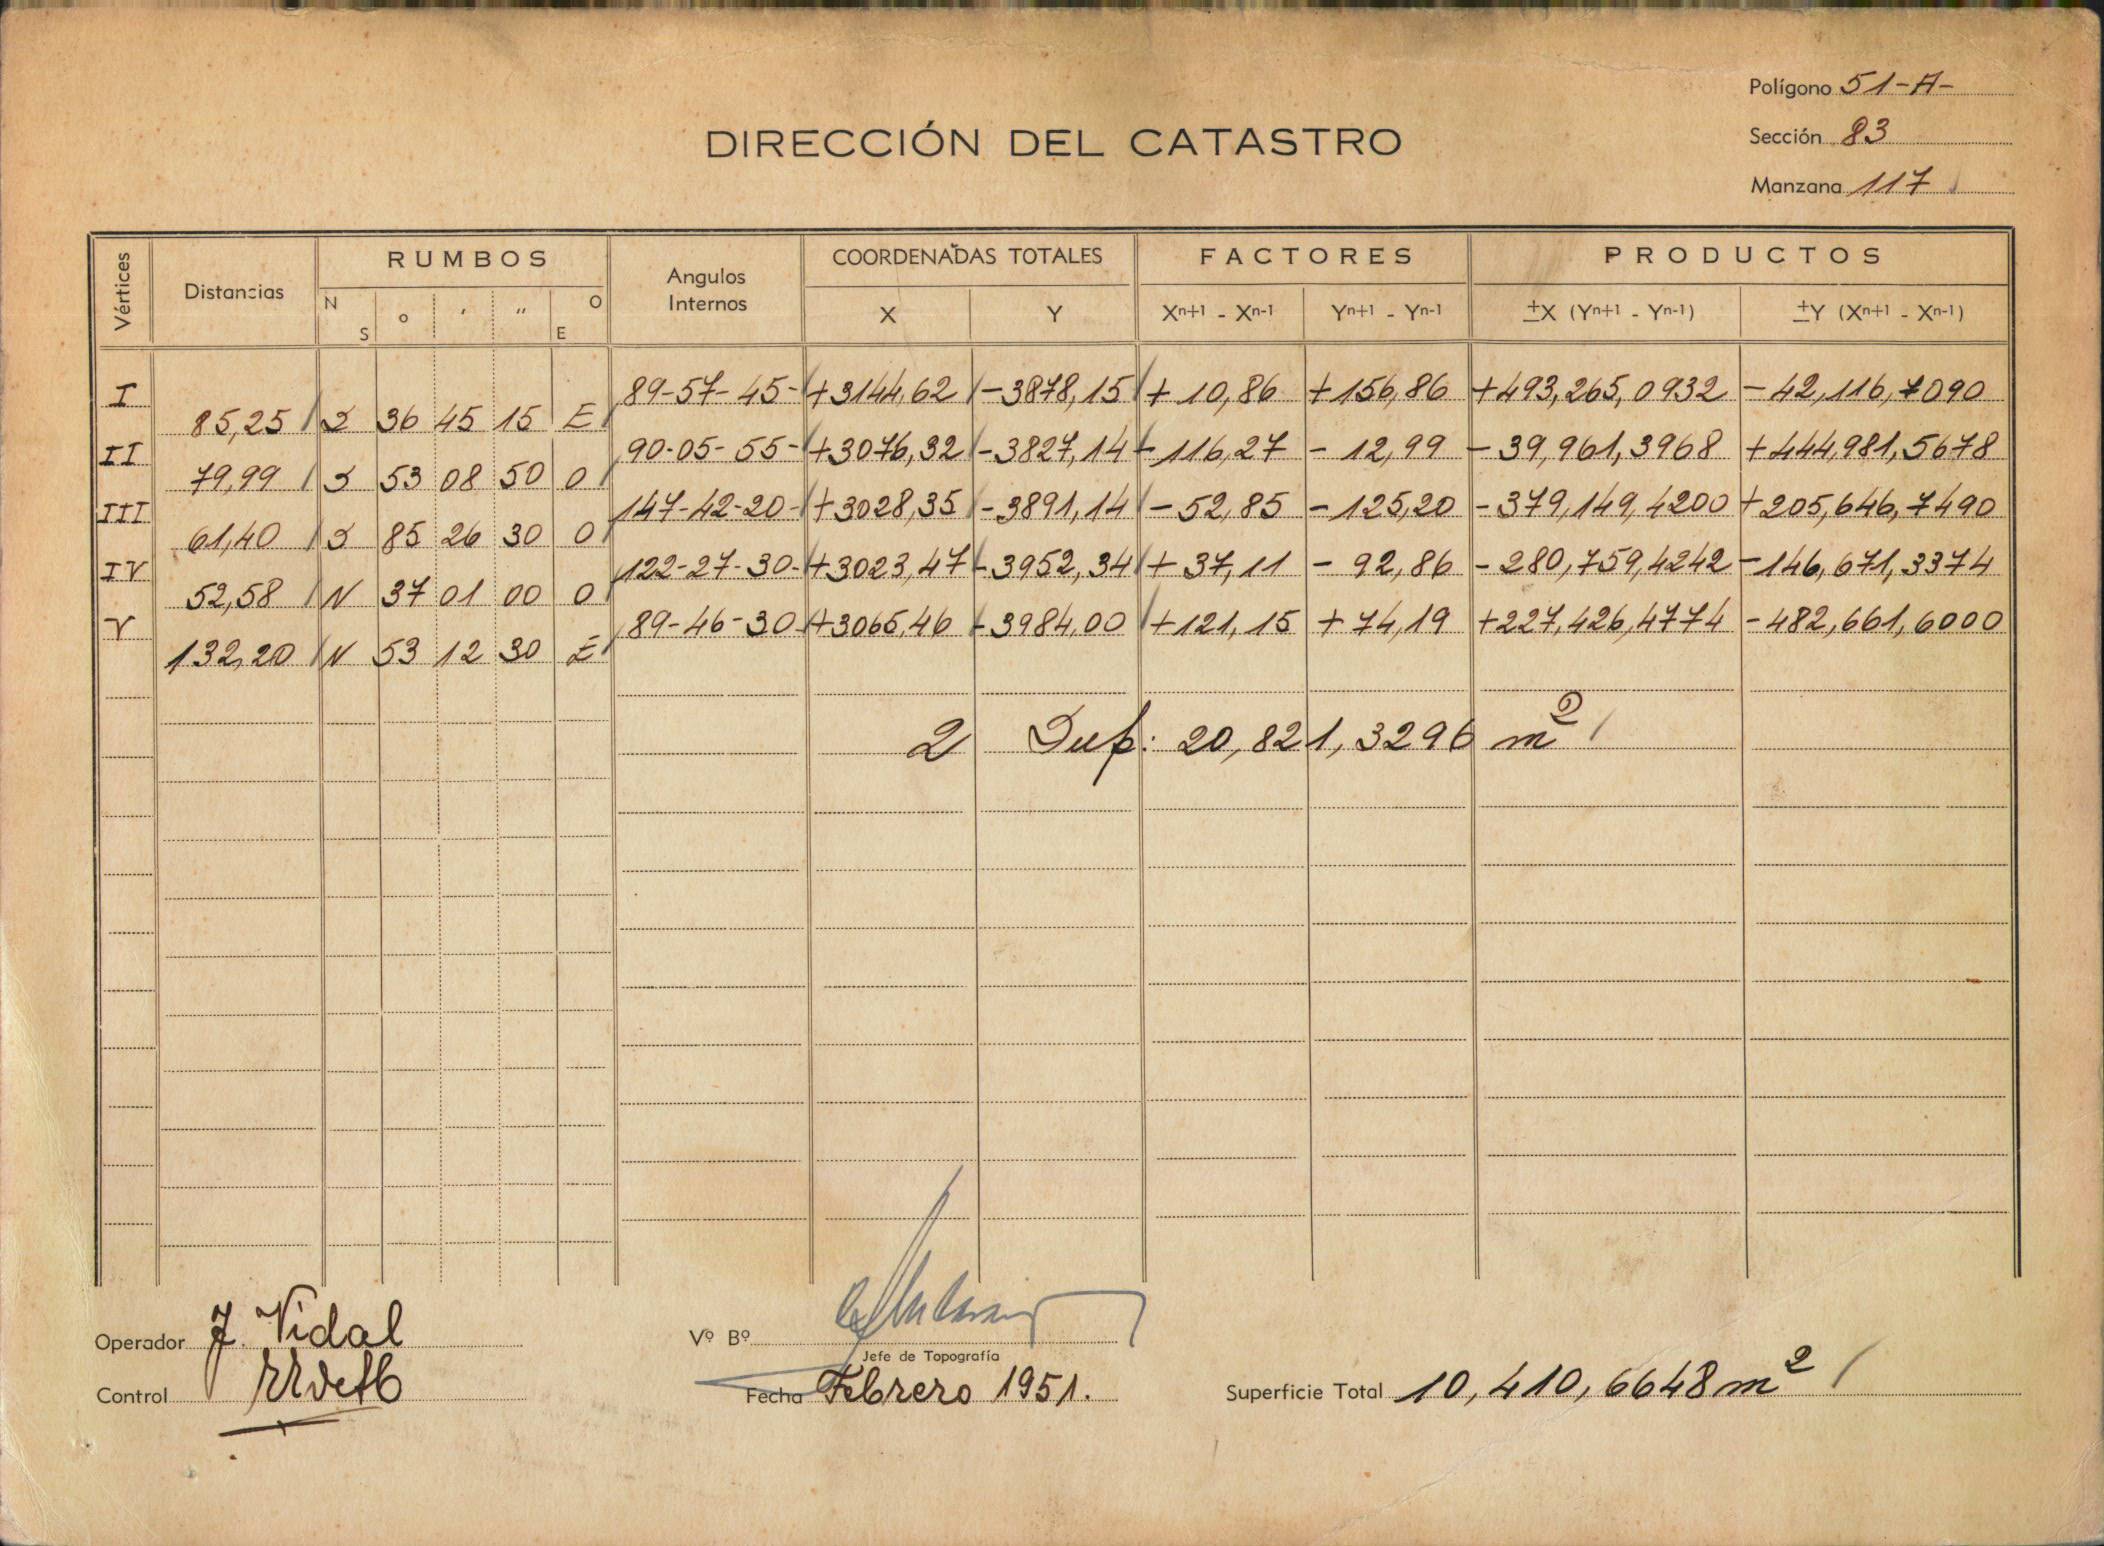 Polígono 51-A-
DIRECCIÓN DEL CATASTRO
Sección 83
Manzana 117
Vértices Distancias RUMBOS Angulos Internos COORDENADAS TOTALES FACTORES PRODUCTOS
N S o ' " O E X Y Xn+1 - Xn-1 Yn+1 - Yn-1 ±X (Yn+1 - Yn-1) ±Y (Xn+1 - Xn-1)
I 89-57-45- +3144,62 -3878,15 + 10,86 +156,86 +493,265,0932 -42,116,7090
85,25 S 36 45 15 E
II 90-05-55- +3076,32 -3827,14 -116,27 - 12,99 -39,961,3968 +444,981,5678
79,99 S 53 08 50 O
III 147-42-20- +3028,35 -3891,14 -52,85 -125,20 -379,149,4200 +205,646,7490
61,40 S 85 26 30 O
IV 122-27-30- +3023,47 -3952,34 +37,11 - 92,86 -280,759,4242 -146,671,3374
52,58 N 37 01 00 O
V 89-46-30- +3065,46 -3984,00 +121,15 +74,19 +227,426,4774 -482,661,6000
132,20 N 53 12 30 E
2 Sup: 20,821,3296 m2
Operador J. Vidal
Vº Bº
Jefe de Topografía
Control
Fecha Febrero 1951.
Superficie Total 10,410,6648 m2